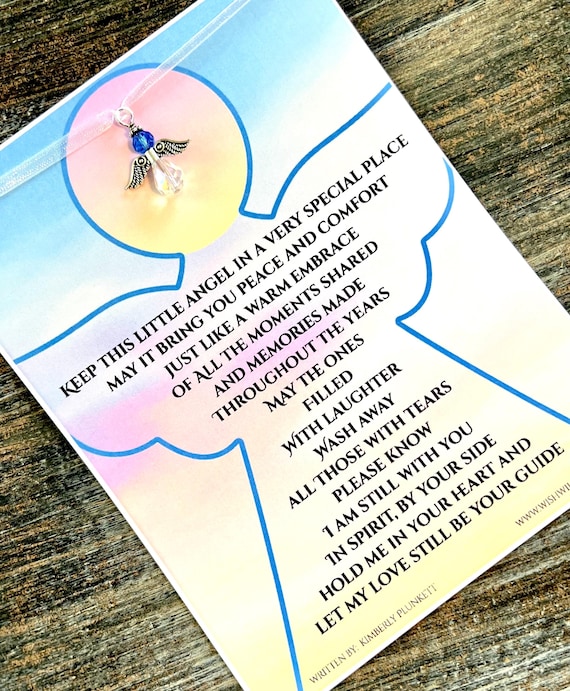 KEEP THIS LITTLE ANGEL IN A VERY SPECIAL PLACE
MAY IT BRING YOU PEACE AND COMFORT
JUST LIKE A WARM EMBRACE
OF ALL THE MOMENTS SHARED
AND MEMORIES MADE
THROUGHOUT THE YEARS
MAY THE ONES
FILLED
WITH LAUGHTER
WASH AWAY
ALL THOSE WITH TEARS
PLEASE KNOW
I AM STILL WITH YOU
IN SPIRIT, BY YOUR SIDE
HOLD ME IN YOUR HEART AND
LET MY LOVE STILL BE YOUR GUIDE
WRITTEN BY: KIMBERLY PLUNKETT